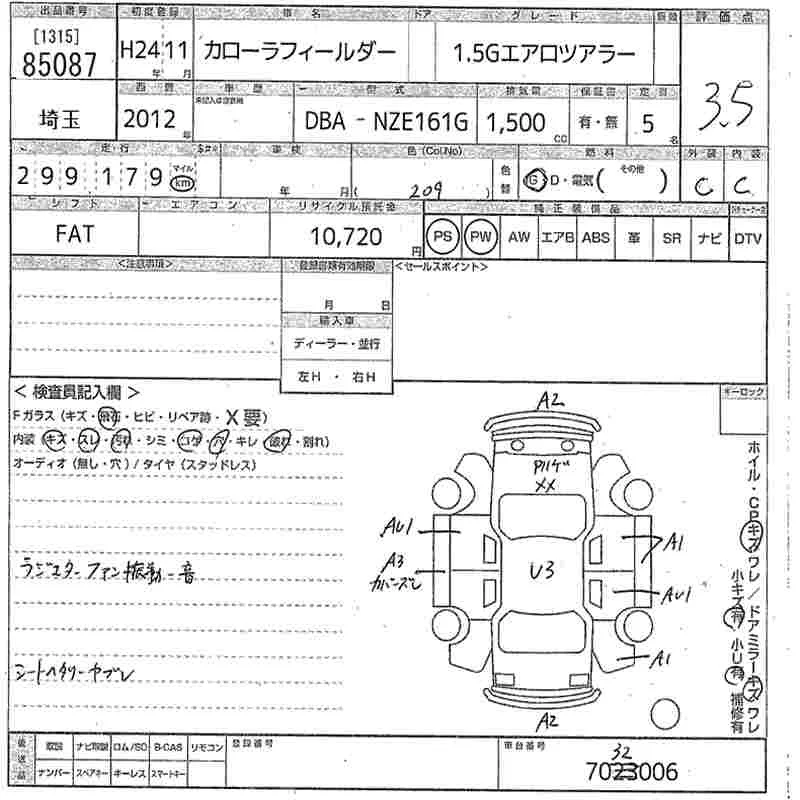 出品番号 初度登録 車名 ドア グレード 評価点
[1315]
85087 H24 11 カローラフィールダー 1.5Gエアロツアラー 3.5
年 月
西暦 車歴 型式 排気量 保証書 定員
埼玉 2012年 DBA - NZE161G 1,500cc 有・無 5名
走行 車検 色(Col.No) 燃料 外装 内装
299179 マイル km 年 月( 209 ) 色替 G D・電気( その他 ) C C
シフト エアコン リサイクル預託金 純正装備品
FAT 10,720円 PS PW AW エアB ABS 革 SR ナビ DTV
<注意事項> 登録書類有効期限 <セールスポイント>
月 日
輸入車
ディーラー・並行
左H・右H
<検査員記入欄> キーロック
Fガラス(キズ・飛石・ヒビ・リペア跡・X要)
内装(キズ・スレ・汚れ・シミ・コゲ・穴・キレ・破れ・割れ)
オーディオ(無し・穴)/タイヤ(スタッドレス)
A2
XX
AU1
A1
A3
カバーズレ
U3
AU1
A1
A2
ラジエターファン振動音
シートヘタリ ヤブレ
ホイル・CPキズワレ/ドアミラーキズワレ
小キズ有 小U有 補修有
後送品 取説 ナビ取説 ロム/SD B-CAS リモコン 登録番号 車台番号
ナンバー スペアキー キーレス スマートキー
32
7023006